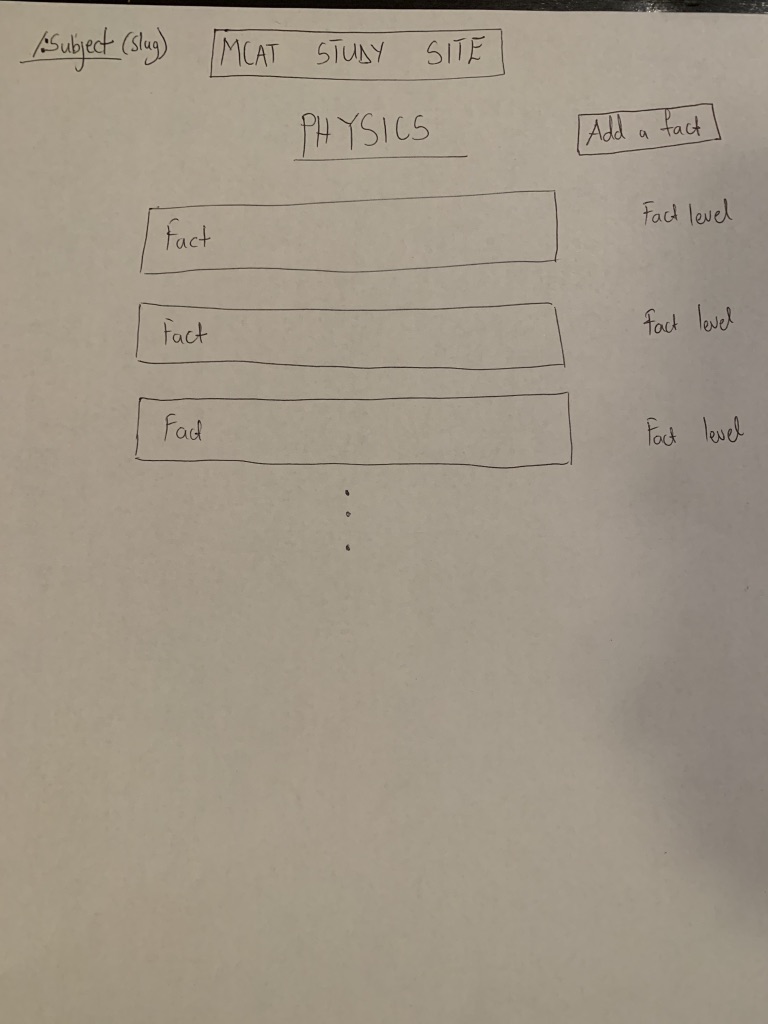 /:Subject (slug)
MCAT STUDY SITE
PHYSICS
Add a fact
Fact
Fact level
Fact
Fact level
Fact
Fact level